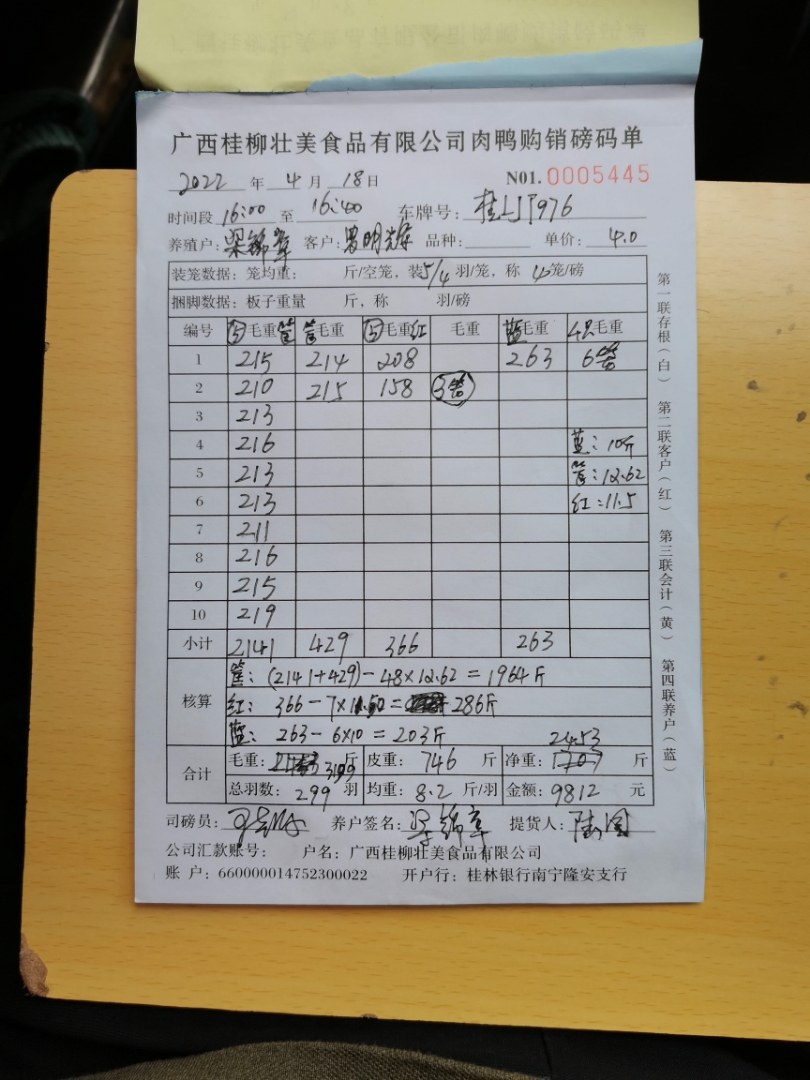 广西桂柳壮美食品有限公司肉鸭购销磅码单
2022 年 4 月 18 日 N01. 0005445
时间段 16:00 至 16:40 车牌号:
养殖户: 梁锦章 客户: 品种: 单价: 4.0
装笼数据: 笼均重: 斤/空笼, 装 5/4 羽/笼, 称 4 笼/磅
捆脚数据: 板子重量 斤, 称 羽/磅
编号 ⑤毛重筐 筐毛重 ⑤毛重红 毛重 蓝毛重 4只毛重
1 215 214 208 263 6笼
2 210 215 158 3笼
3 213
4 216 蓝: 10斤
5 213 筐: 12.62
6 213 红: 11.5
7 211
8 216
9 215
10 219
小计 2141 429 366 263
核算
筐: (2141+429)-48×12.62=1964斤
红: 366-7×11.50= 286斤
蓝: 263-6×10=203斤
合计
毛重: 3199 斤 皮重: 746 斤 净重: 2453 斤
总羽数: 299 羽 均重: 8.2 斤/羽 金额: 9812 元
司磅员: 养户签名: 梁锦章 提货人:
公司汇款账号: 户名: 广西桂柳壮美食品有限公司
账 户: 660000014752300022 开户行: 桂林银行南宁隆安支行
第一联存根(白)
第二联客户(红)
第三联会计(黄)
第四联养户(蓝)